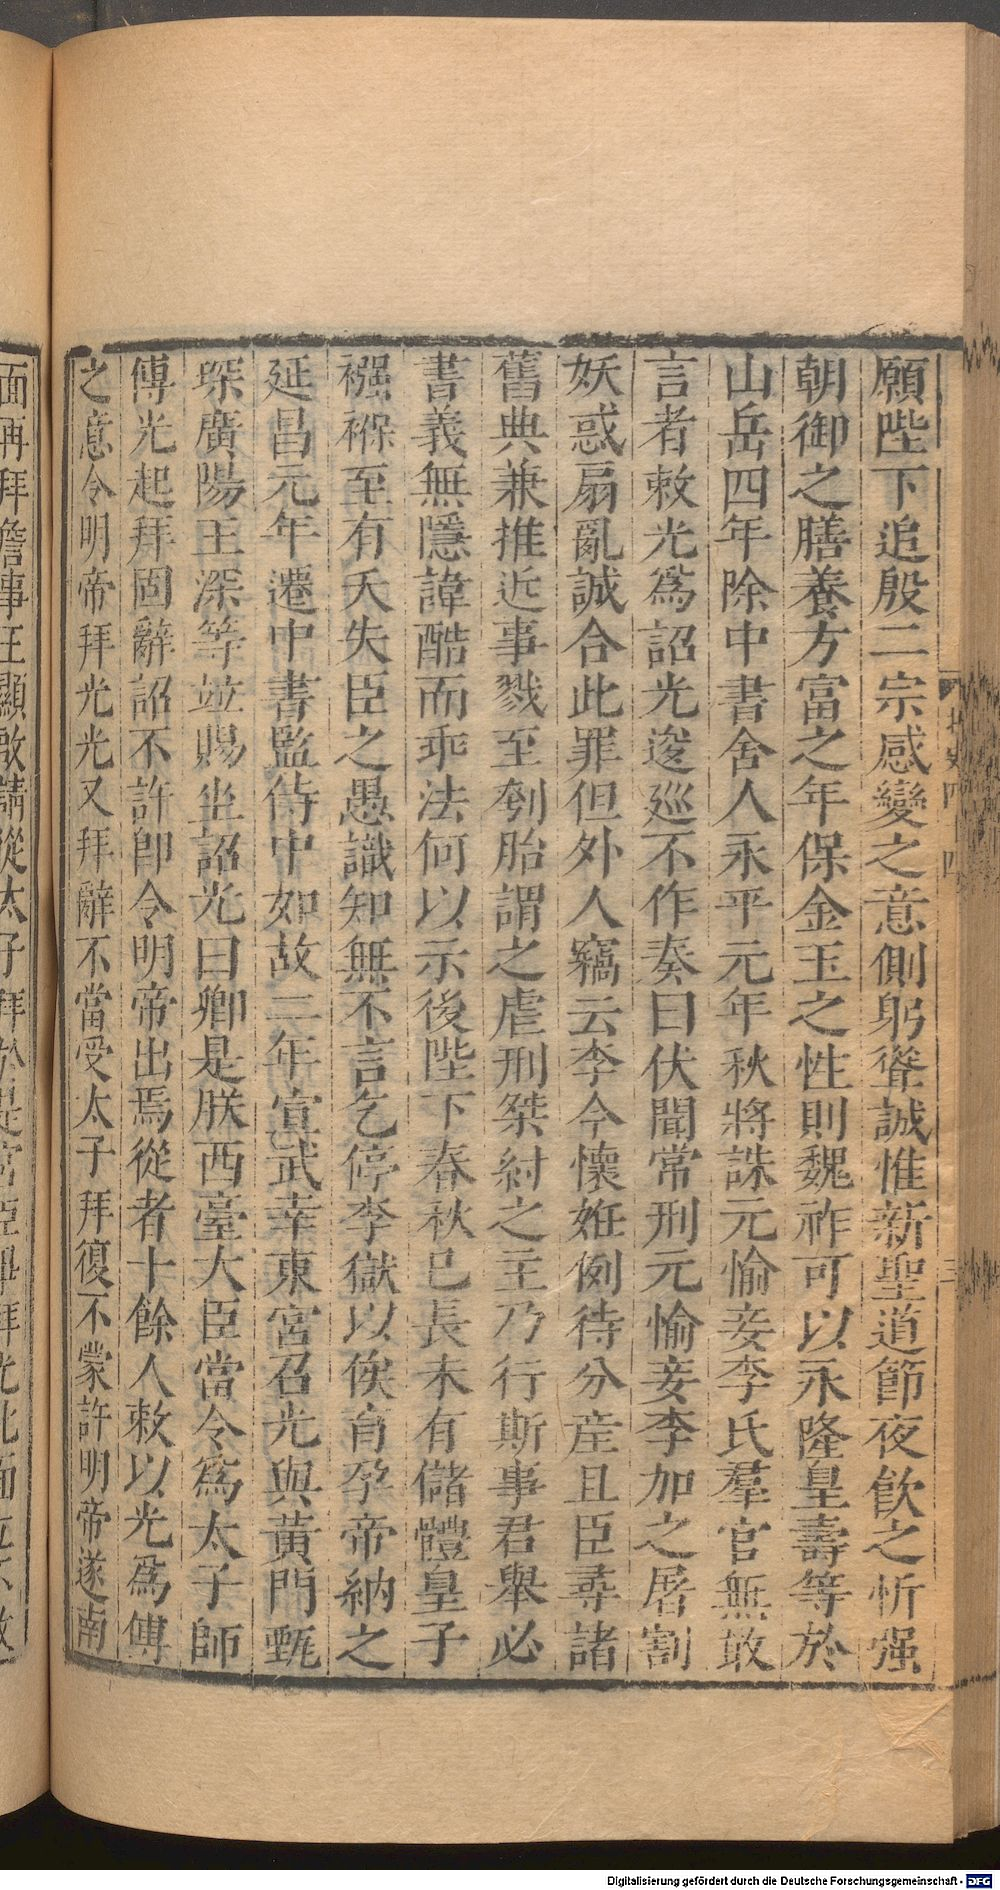 願陛下追殷二宗感變之意側躬聳誠惟新聖道節夜飲之忻强
朝御之膳養方富之年保金玉之性則魏祚可以永隆皇壽等於
山岳四年除中書舍人永平元年秋將誅元愉妾李氏羣官無敢
言者敕光爲詔光逡巡不作奏曰伏聞當刑元愉妾李加之屠割
妖惑扇亂誠合此罪但外人竊云李今懷姙例待分産且臣尋諸
舊典兼推近事戮至刳胎謂之虐刑桀紂之主乃行斯事君舉必
書義無隱諱酷而乖法何以示後陛下春秋已長未有儲體皇子
襁褓至有夭失臣之愚識知無不言乞停李獄以俟育孕帝納之
延昌元年遷中書監侍中如故二年宣武幸東宮召光與黃門甄
琛廣陽王深等竝賜坐詔光曰卿是朕西臺大臣當令爲太子師
傅光起拜固辭詔不許卽令明帝出焉從者十餘人敕以光爲傅
之意令明帝拜光光又拜辭不當受太子拜復不蒙許明帝遂南
面再拜詹事王顯啟請從太子拜於是宮臣畢拜光北面立不敢
北史四十四
三
Digitalisierung gefördert durch die Deutsche Forschungsgemeinschaft - DFG